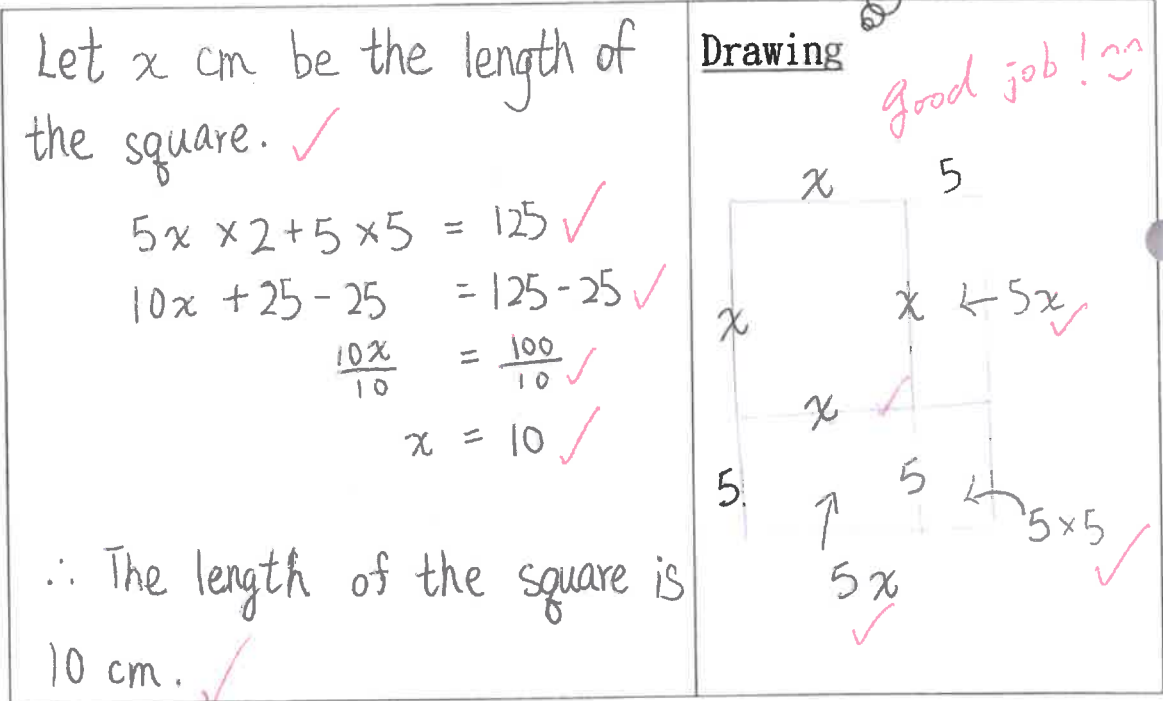 Let x cm be the length of
the square. ✓
5x × 2 + 5 × 5 = 125 ✓
10x + 25 - 25 = 125 - 25 ✓
10x/10 = 100/10 ✓
x = 10 ✓
∴ The length of the square is
10 cm. ✓
Drawing
good job!
x 5
x x ← 5x ✓
x ✓
5 5
5×5 ✓
5x ✓